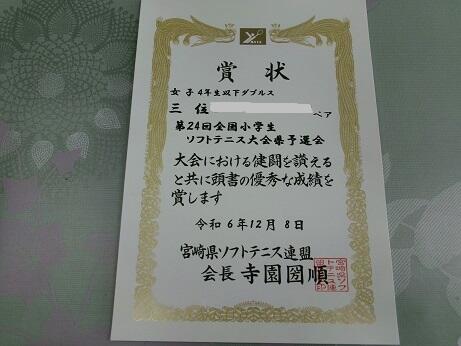 賞状
女子4年生以下ダブルス
三位
ペア
第24回全国小学生
ソフトテニス大会県予選会
大会における健闘を讃える
と共に頭書の優秀な成績を
賞します
令和6年12月8日
宮崎県ソフトテニス連盟
会長 寺園圀順